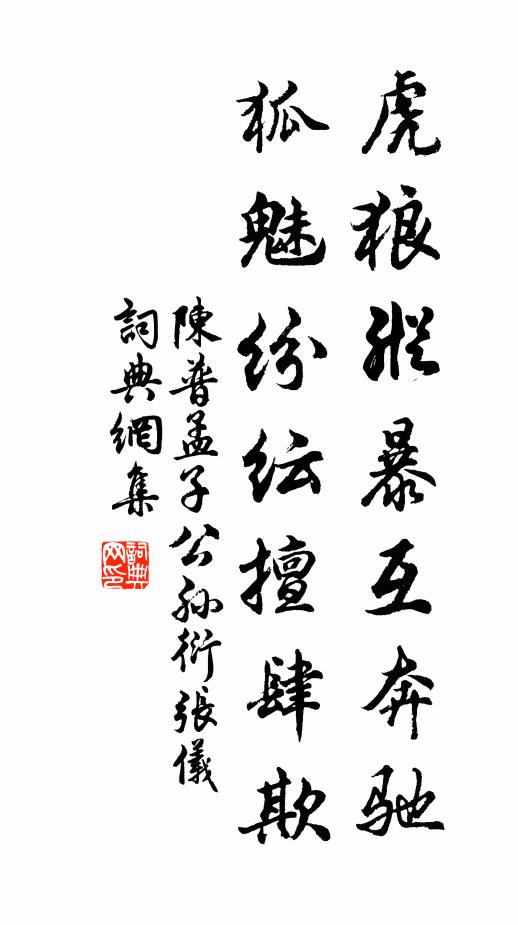 虎狼縱暴互奔驰
狐魅纷纭擅肆欺
陳普孟子公孙衍張儀
詞典網集
詞典网印